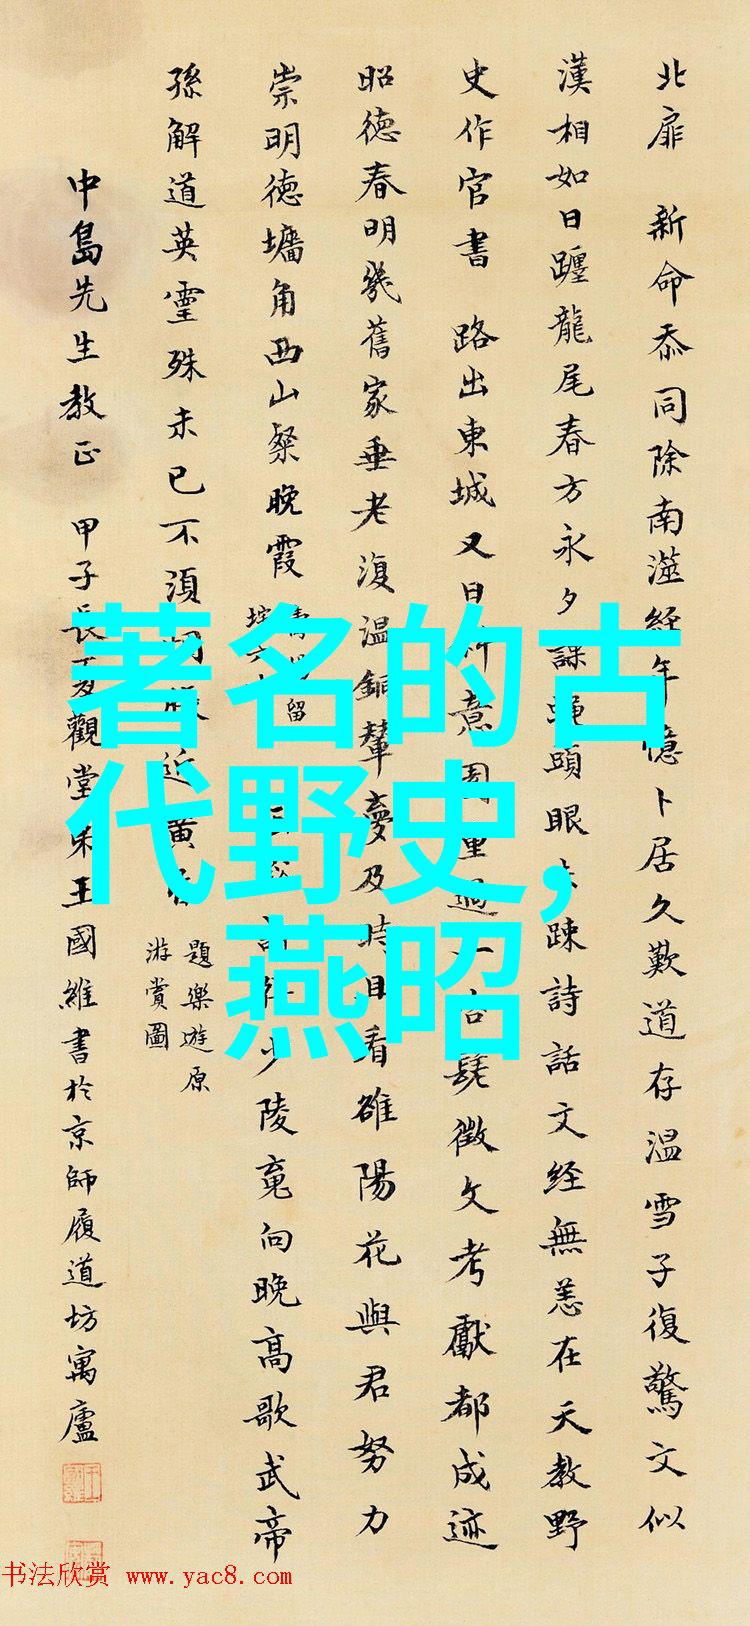 著名的古
代野史,
燕昭
北扉 新命忝同除南澨經年憶卜居久歎道存温雪子復驚文似
漢相如日躔龍尾春方永夕課蠅頭眼未疎詩話文經無恙在天教野
史作官書 路出東城又日斜意園重過一徵文考獻都成迹
昭德春明幾舊家垂老復温銅輦夢及時且看雒陽花與君努力
崇明德墉角西山粲晚霞 留 少陵竟向晚高歌武帝
孫解道英靈殊未已不須惆悵近黄昏 題樂遊原
游賞圖
中島先生教正 甲子長夏觀堂弟王國維書於京師履道坊寓廬
书法欣赏 www.yac8.com